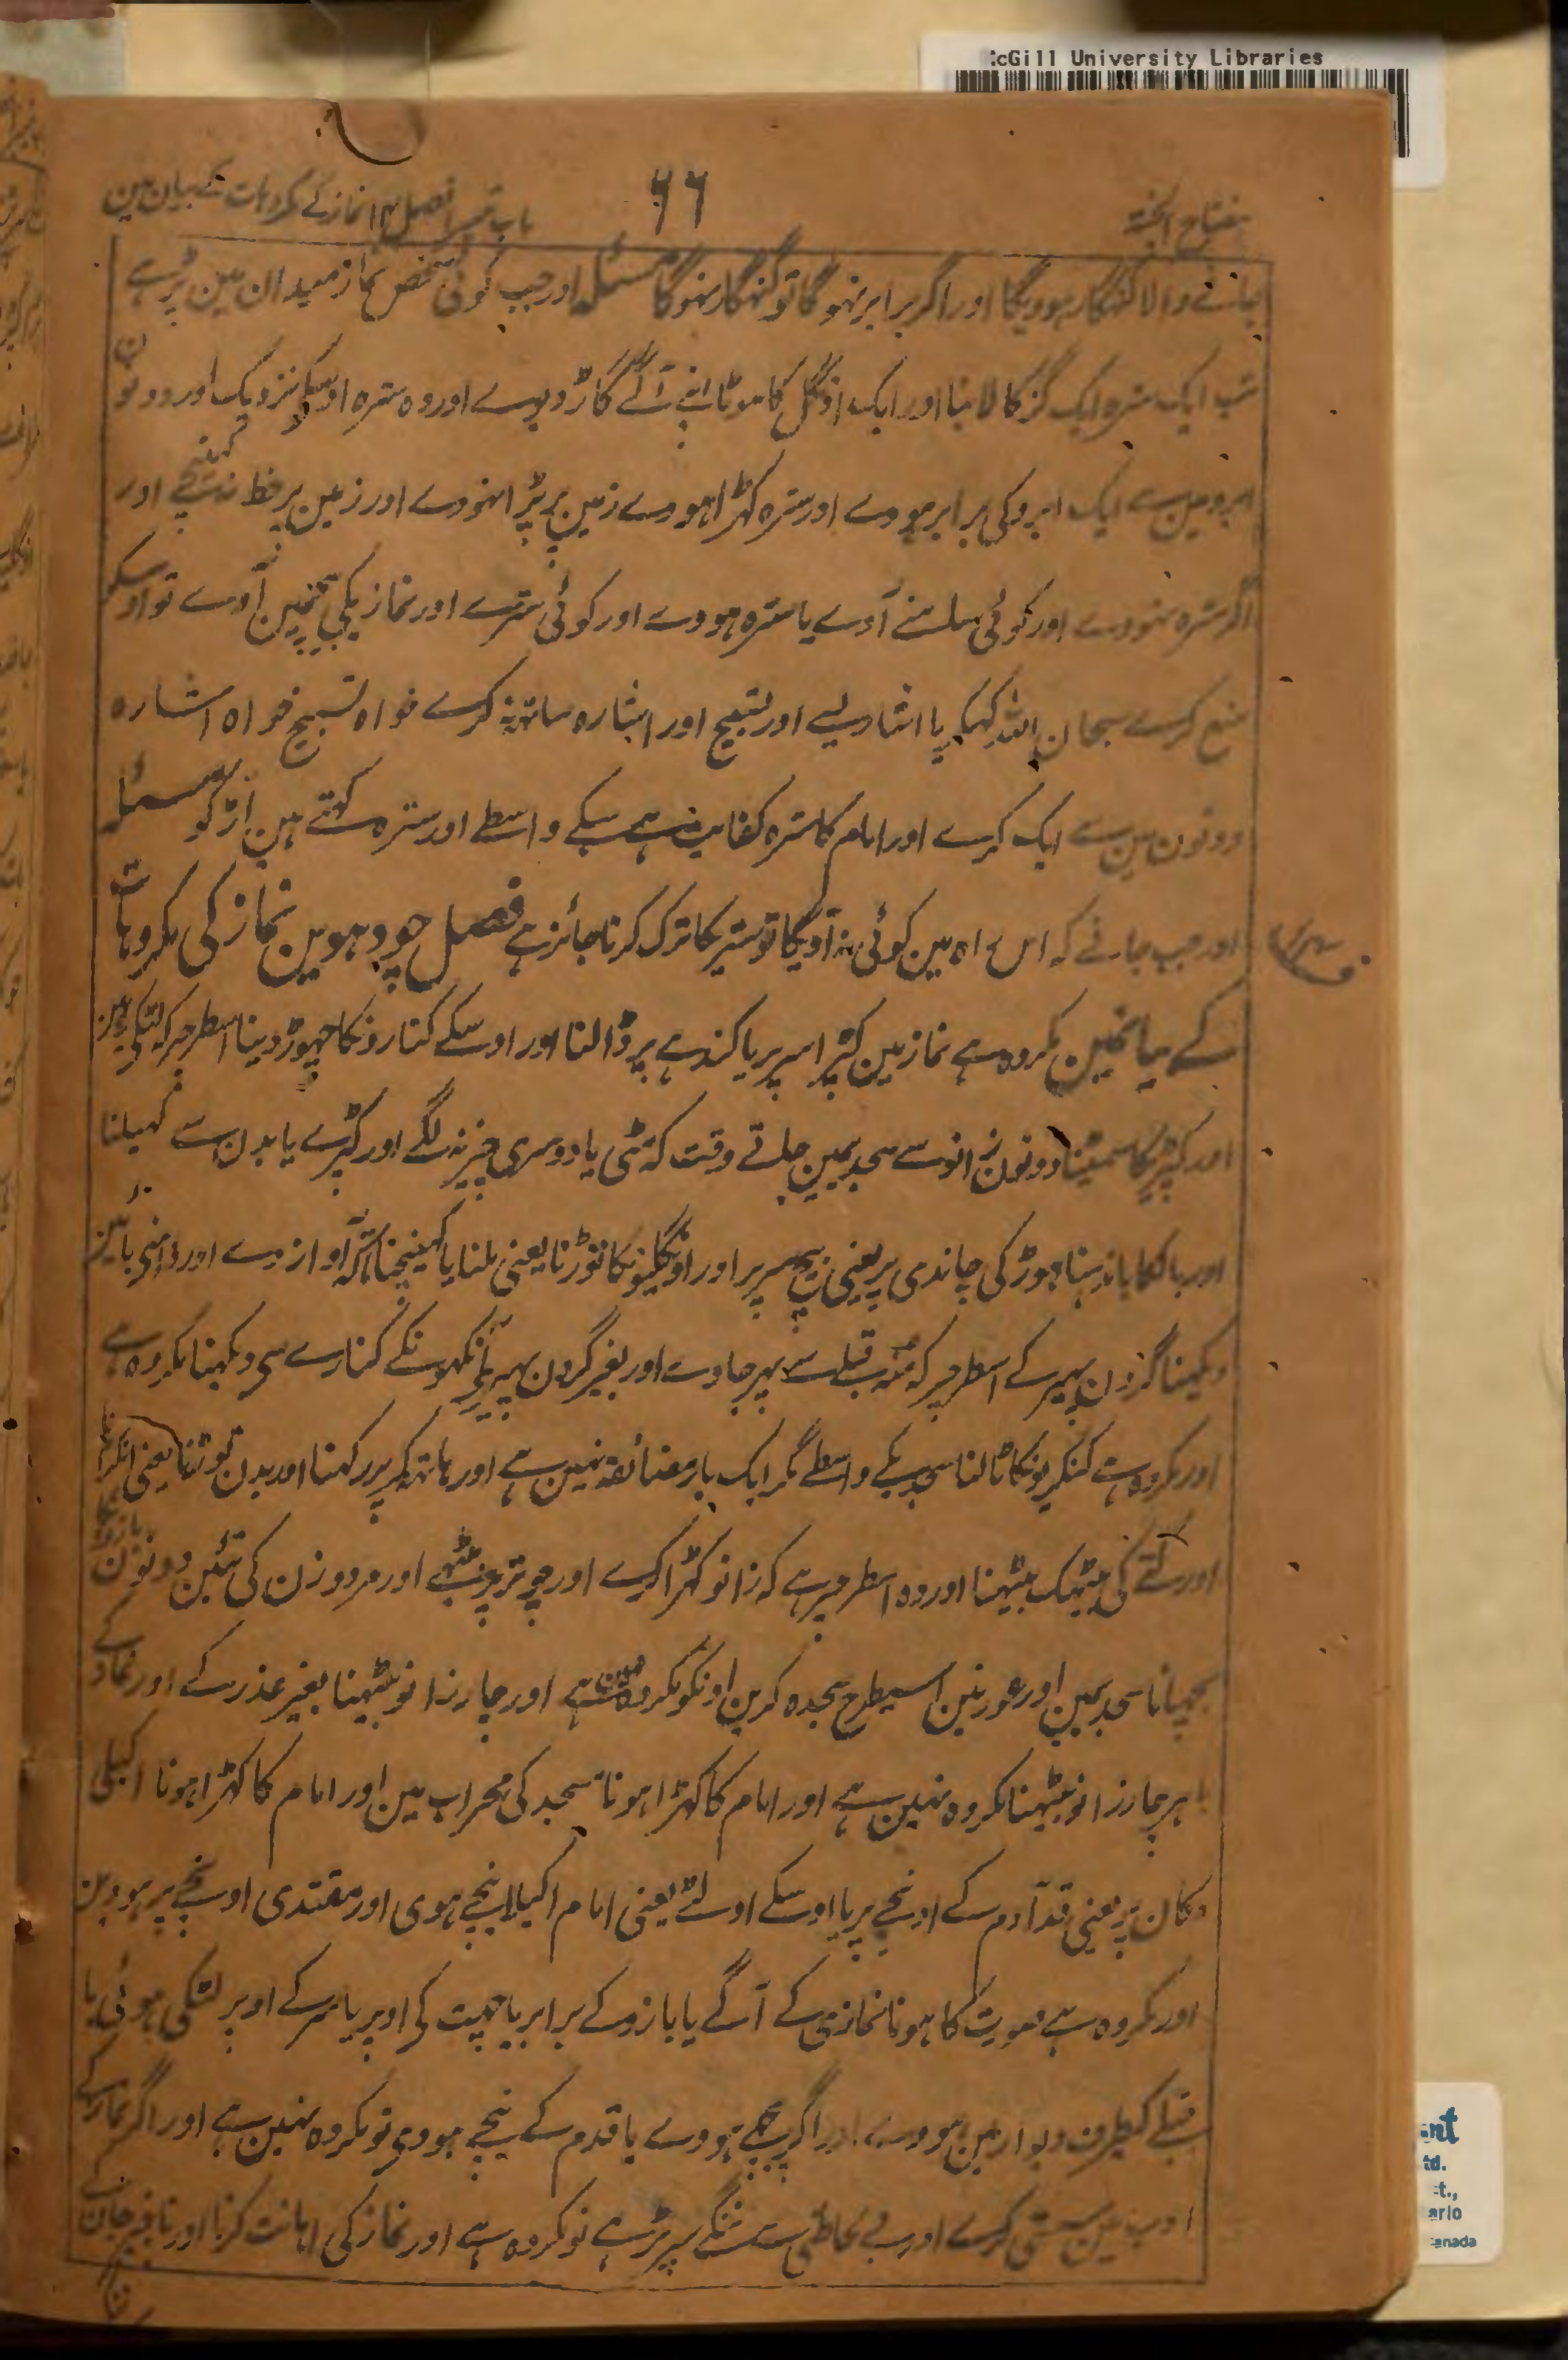 McGill University Libraries
مفتاح الجنۃ
۶۶
باب تیسرا فصل ۱۴ نماز کے مکروہات کے بیان مین
جانے والا گنہگار ہوویگا اور اگر برابر نہوگا تو گنہگار نہوگا مسئلہ اور جب کوئی شخص نماز میدان مین پڑہے
تب ایک سترہ ایک گز کا لانبا اور ایک اونگل کا موٹا اپنے آگے گاڑ دیوے اور وہ سترہ اوسکے نزدیک اور دونون
ابرو مین سے ایک ابرو کی برابر ہووے اور سترہ کھڑا ہووے زمین پر پڑا نہووے اور زمین پر خط نہ کھینچے اور
اگر سترہ نہووے اور کوئی سامنے آوے یا سترہ ہووے اور کوئی سترے اور نمازیکے بیچمین آوے تو اوسکو
منع کرے سبحان اللہ کہکر یا اشارے سے اور تسبیح اور اشارہ ساتھ نہ کرے خواہ تسبیح خواہ اشارہ
دونون مین سے ایک کرے اور امام کا سترہ کفایت ہے سبکے واسطے اور سترہ کہتے ہین آڑ کو مسئلہ
اور جب جانے کہ اس راہ مین کوئی نہ آویگا تو ستریکا ترک کرنا جائز ہے فصل چودہوین نماز کی مکروہات
کے بیانمین مکروہ ہے نماز مین کپڑا سر پر یا کندہے پر ڈالنا اور اوسکے کنارونکا چھوڑ دینا اسطرحپر کہ لٹکے رہین
اور کپڑیکا سمیٹنا دونون زانو سے سجدیمین جاتے وقت کہ مٹی یا دوسری چیز نہ لگے اور کپڑے یا بدن سے کھیلنا
اور بالکا باندہنا جوڑ کی چاندی پر یعنی بیچ سر پر اور اونگلیونکا توڑنا یعنی ملنا یا کھینچنا تاکہ آواز دے اور داہنی بائین
دیکھنا گردن پھیر کے اسطرحپر کہ منہ قبلے سے پھر جاوے اور بغیر گردن پھیرے آنکھونکے کنارے سے دیکھنا مکروہ ہے
اور مکروہ ہے کنکریونکا ٹالنا سجدیکے واسطے مگر ایک بار مضائقہ نہین ہے اور ہاتھ کمر پر رکھنا اور بدن توڑنا یعنی انگڑانا
اور کتے کی بیٹھک بیٹھنا اور وہ اسطرحپر ہے کہ زانو کھڑا کرے اور چوتڑ پر بیٹھے اور مرد و زن کی تئین دونون بازو کا
بچھانا سجدیمین اور عورتین اسیطرح سجدہ کرین اونکو مکروہ نہین ہے اور چار زانو بیٹھنا بغیر عذر کے اور نماز کے
باہر چار زانو بیٹھنا مکروہ نہین ہے اور امام کا کھڑا ہونا مسجد کی محراب مین اور امام کا کھڑا ہونا اکیلی
دکان پر یعنی قد آدم کے اونچے پر یا اوسکے اولٹے یعنی امام اکیلا نیچے ہووی اور مقتدی اونچے پر ہووین
اور مکروہ ہے صورت کا ہونا نمازی کے آگے یا بازو کے برابر یا چھت کی اوپر یا سر کے اوپر لٹکی ہوئی یا
قبلے کیطرف دیوار مین ہووے اور اگر پیچھے ہووے یا قدم کے نیچے ہووی تو مکروہ نہین ہے اور اگر نماز کے
ادب مین سستی کرے اور بے لحاظی سے ننگے سر پڑہے تو مکروہ ہے اور نماز کی اہانت کرنا اور ناچیز جان کے